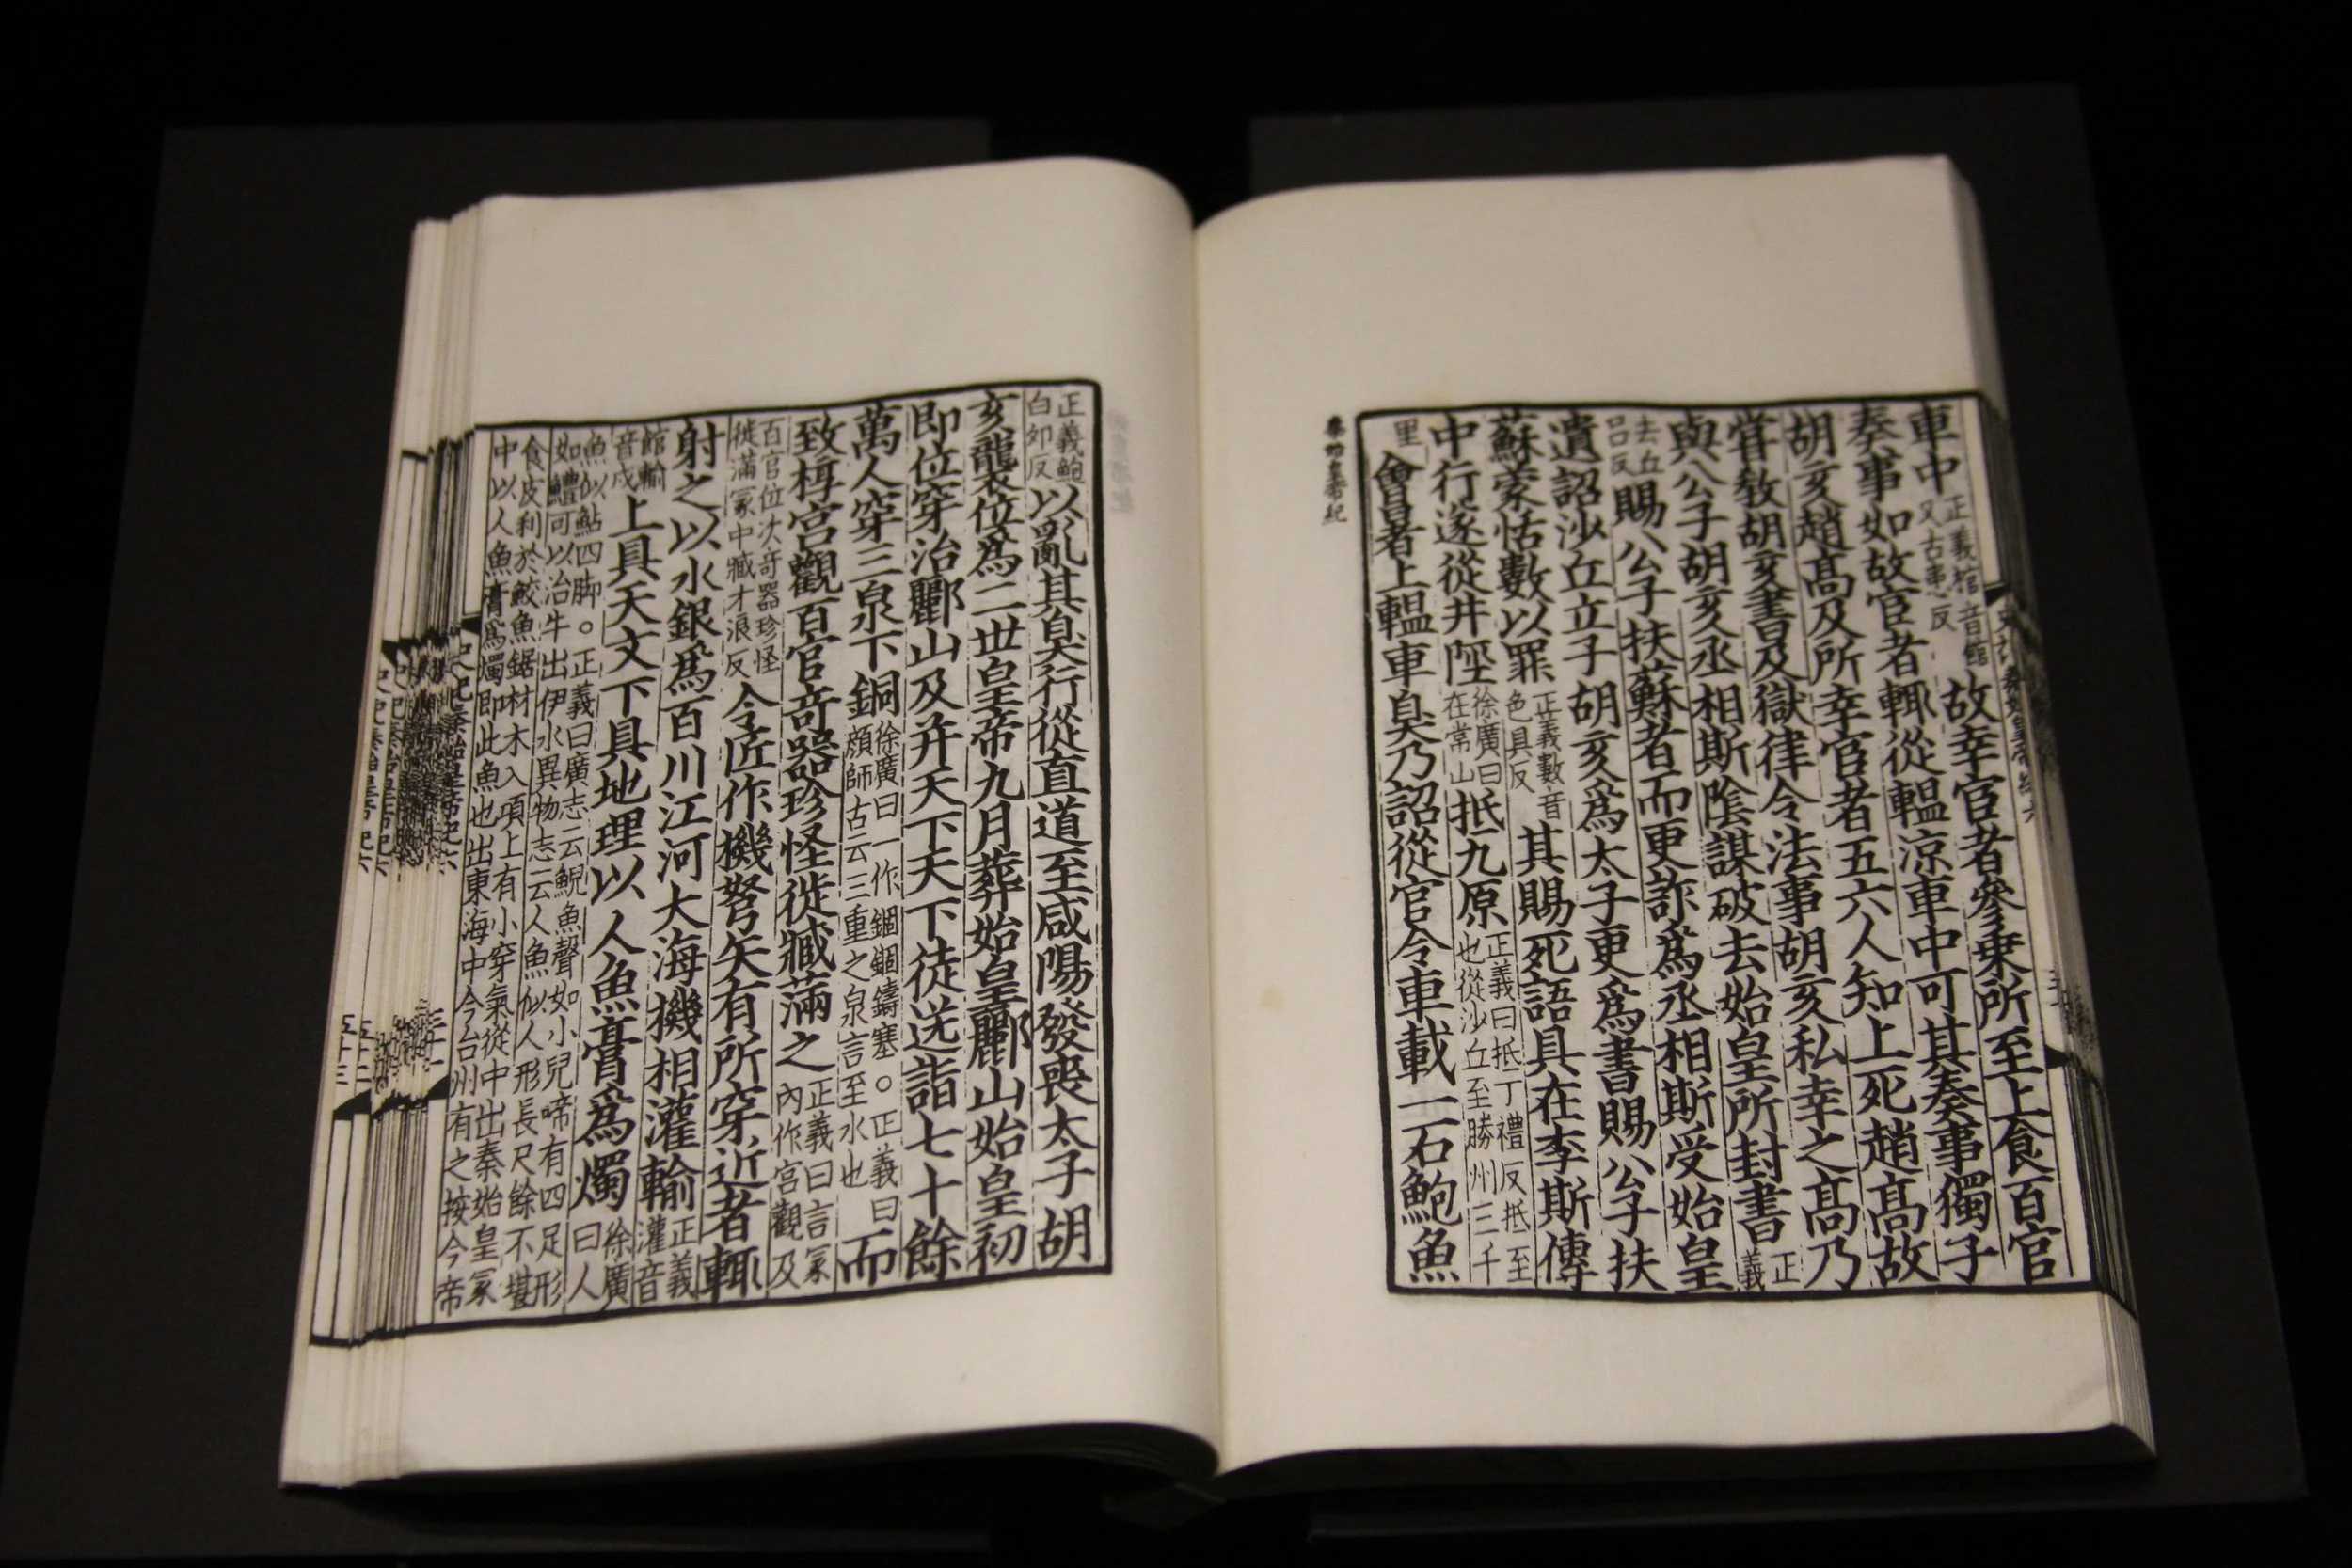 車中正義棺音館又古患反故幸宦者參乗所至上食百官
奏事如故宦者輒從轀涼車中可其奏事獨子
胡亥趙髙及所幸宦者五六人知上死趙髙故
甞教胡亥書及獄律令法事胡亥私幸之髙乃
與公子胡亥丞相斯隂謀破去始皇所封書正義
去丘吕反賜公子扶蘇者而更詐爲丞相斯受始皇
遺詔沙丘立子胡亥爲太子更爲書賜公子扶
蘇蒙恬數以罪正義數音色具反其賜死語具在李斯傳
中行遂從井陘徐廣曰在常山抵九原正義曰抵丁禮反抵至也從沙丘至勝州三千
里會暑上轀車臭乃詔從官令車載一石鮑魚
秦始皇帝紀
正義鮑白卯反以亂其臭行從直道至咸陽發喪太子胡
亥襲位爲二世皇帝九月葬始皇酈山始皇初
即位穿治酈山及并天下天下徒送詣七十餘
萬人穿三泉下銅徐廣曰一作錮錮鑄塞。正義曰顔師古云三重之泉言至水也而
致椁宫觀百官竒器珍怪徙臧滿之正義曰言冢内作宫觀及
百官位次竒器珍怪徙滿冢中臧才浪反令匠作機弩矢有所穿近者輒
射之以水銀爲百川江河大海機相灌輸正義灌音
館輸音戍上具天文下具地理以人魚膏爲燭徐廣曰人
魚似鮎四脚。正義曰廣志云鯢魚聲如小兒啼有四足形
如鱧可以治牛出伊水異物志云人魚似人形長尺餘不堪
食皮利於鮫魚鋸材木入項上有小穿氣從中出秦始皇冢
中以人魚膏爲燭即此魚也出東海中今台州有之按今帝
史記秦始皇帝紀六